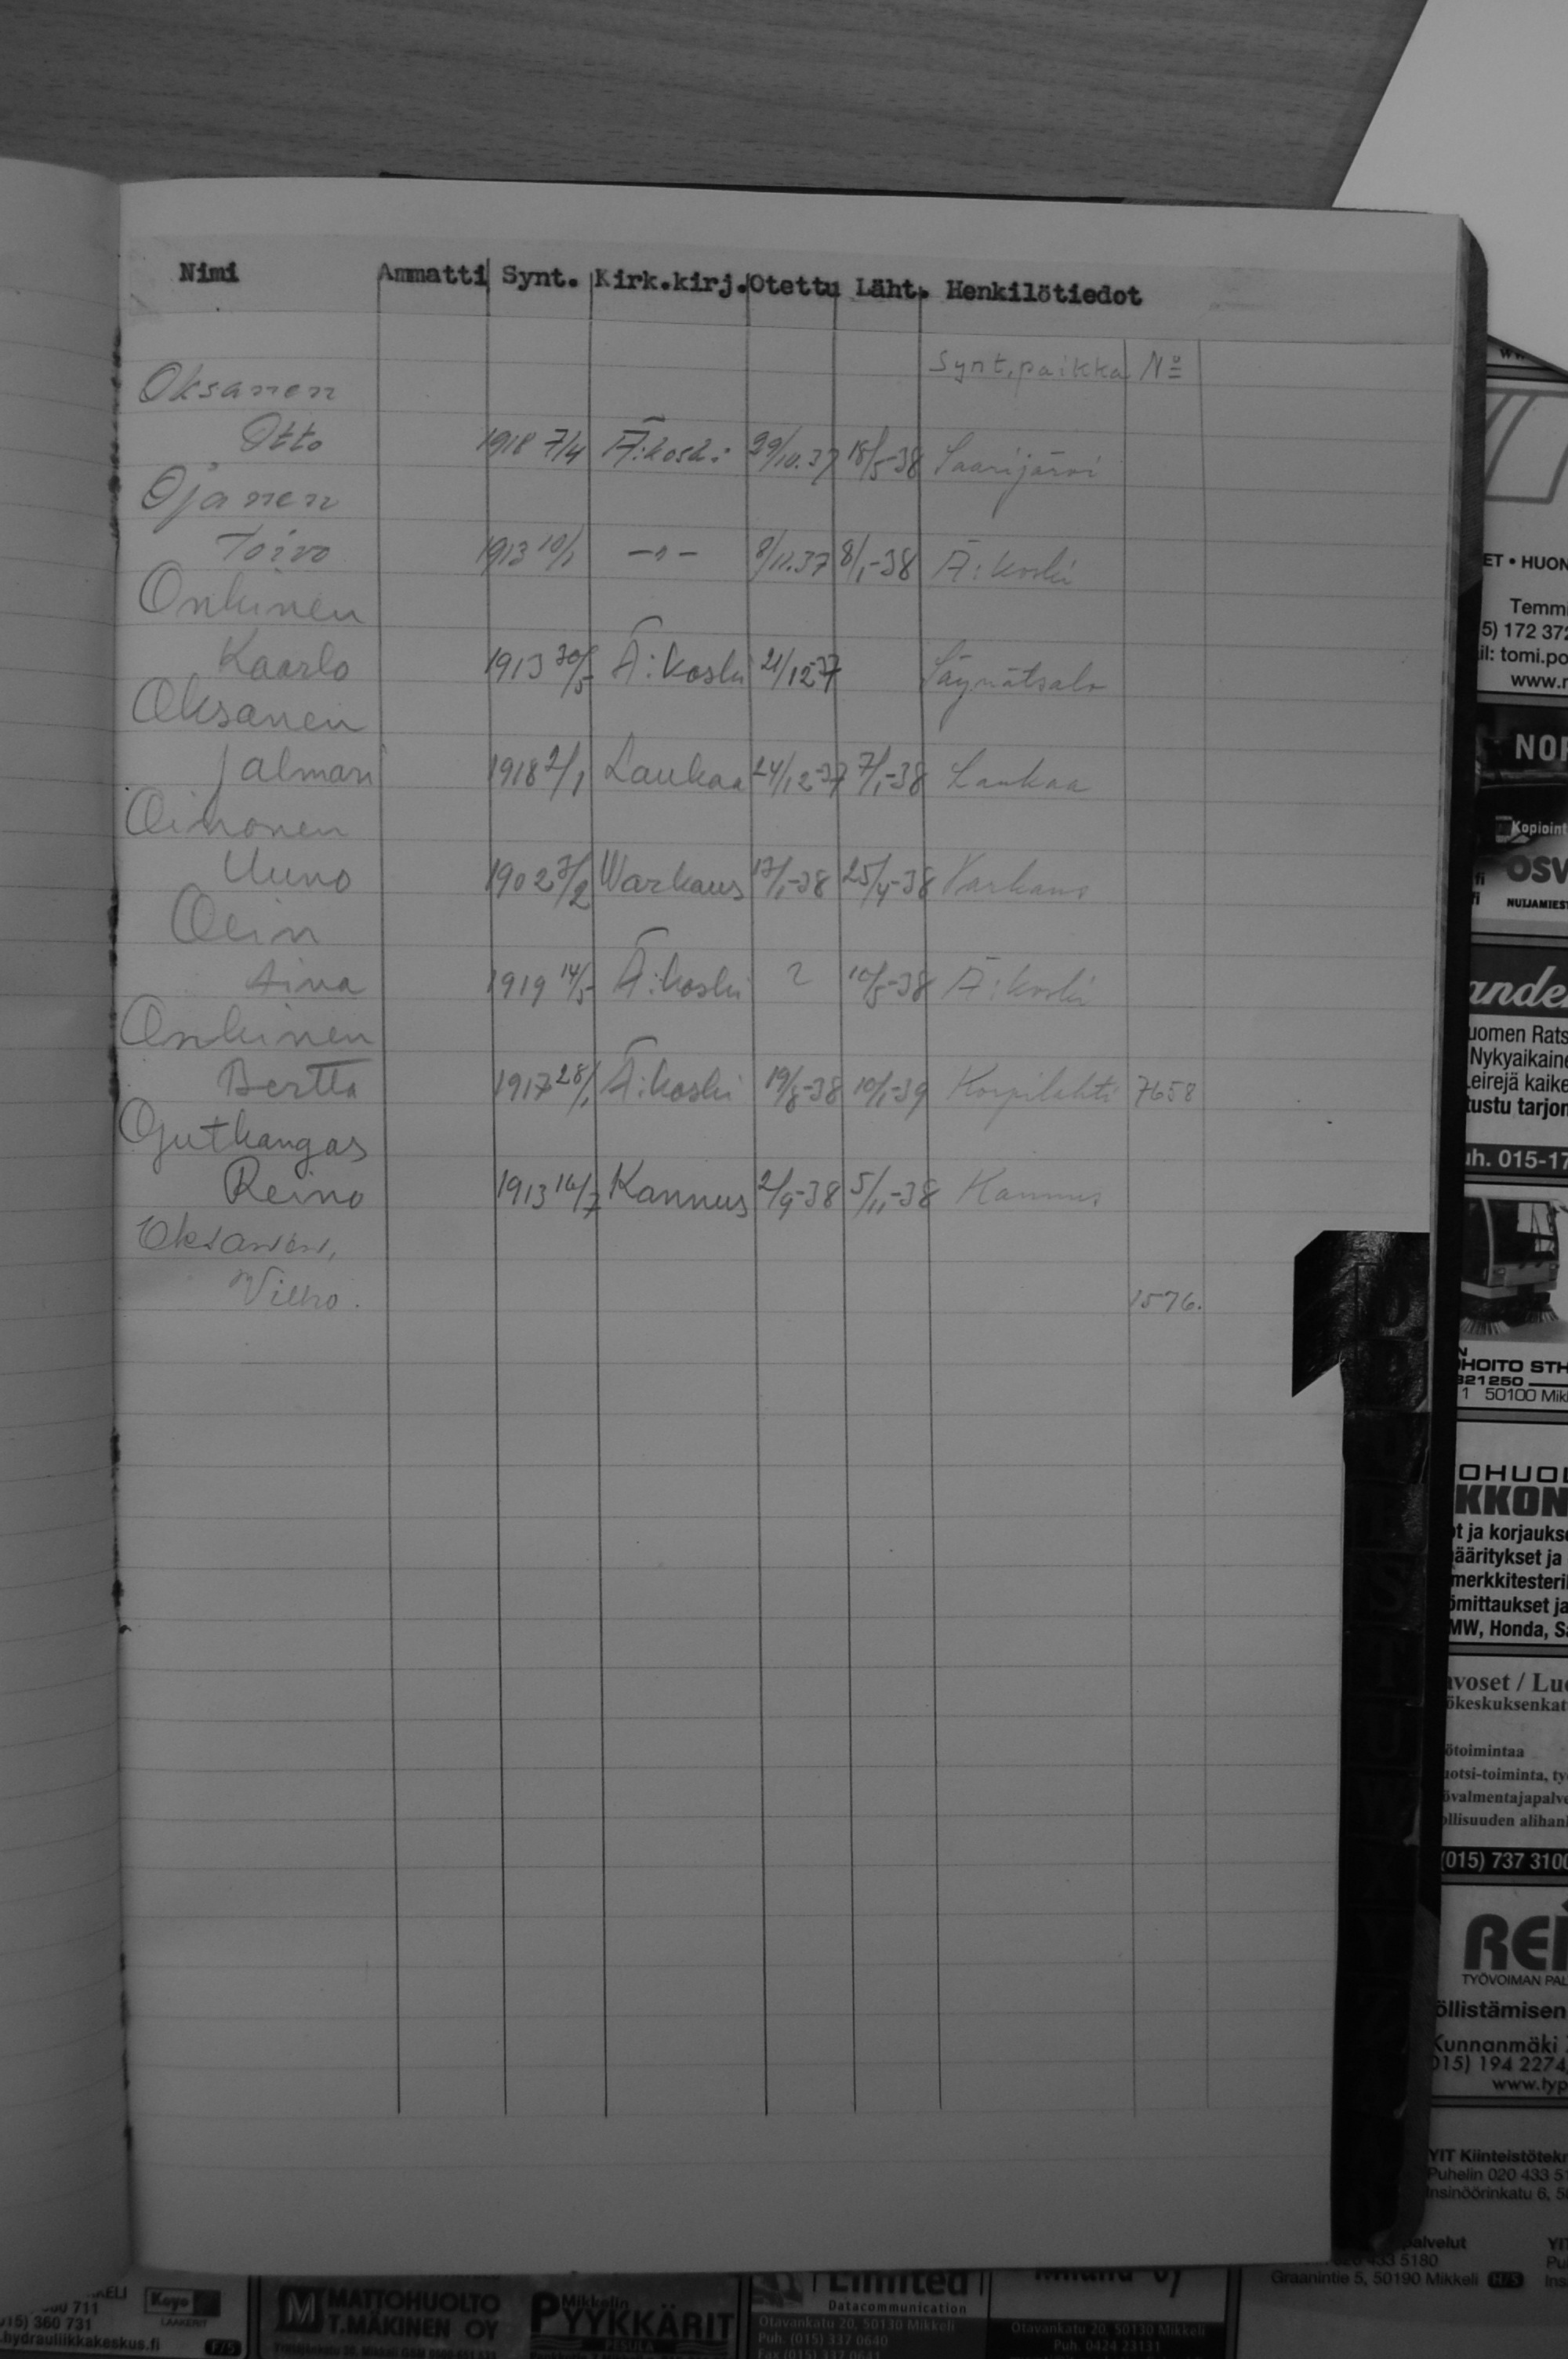 Nimi Ammatti Synt. Kirk.kirj. Otettu Läht. Henkilötiedot
Synt.paikka No
Oksanen
Otto 1918 7/4 Ä:koski 29/10.37 18/5-38 Saarijärvi
Ojanen
Toivo 1913 10/1 -"- 8/11.37 8/1-38 Ä:koski
Onkinen
Kaarlo 1913 30/5 Ä:koski 21/12-37 Säynätsalo
Oksanen
Jalmari 1918 2/1 Laukaa 24/12-37 7/1-38 Laukaa
Oinonen
Uuno 1902 7/2 Warkaus 17/1-38 25/4-38 Varkaus
Oein
Aina 1919 14/5 Ä:koski ? 10/5-38 Ä:koski
Onkinen
Bertta 1917 28/1 Ä:koski 19/8-38 10/1-39 Korpilahti 7658
Ojutkangas
Reino 1913 16/7 Kannus 2/9-38 5/11-38 Kannus
Oksanen,
Vilho. 1576.
ET • HUON
Temmi
5) 172 372
il: tomi.po
www.r
NOR
Kopioint
OSV
NUIJAMIEST
ande
uomen Rats
Nykyaikaine
Leirejä kaike
tustu tarjon
uh. 015-17
HOITO STH
321250
1 50100 Mikk
OHUOL
KKON
ot ja korjaukse
ääritykset ja
merkkitesteril
ömittaukset ja
MW, Honda, Sa
avoset / Luo
ökeskuksenkat
ötoimintaa
uotsi-toiminta, työ
övalmentajapalve
ollisuuden alihank
(015) 737 3100
REI
TYÖVOIMAN PAL
öllistämisen
Kunnanmäki
015) 194 2274,
www.typ
YIT Kiinteistötekn
Puhelin 020 433 51
Insinöörinkatu 6, 50
palvelut
433 5180
Graanintie 5, 50190 Mikkeli H/5
KELI
Koyo
LAAKERIT
015) 360 731
.hydrauliikkakeskus.fi F/5
M MATTOHUOLTO
T.MÄKINEN OY
Mikkelin
PYYKKÄRIT
PESULA
Limited
Datacommunication
Otavankatu 20, 50130 Mikkeli
Puh. (015) 337 0640
Fax (015) 337 0641
Otavankatu 20, 50130 Mikkeli
Puh. 0424 23131